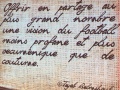 Offrir en partage au
plus grand nombre
une vision du football
moins profane et plus
œcuménique que de
coutume.